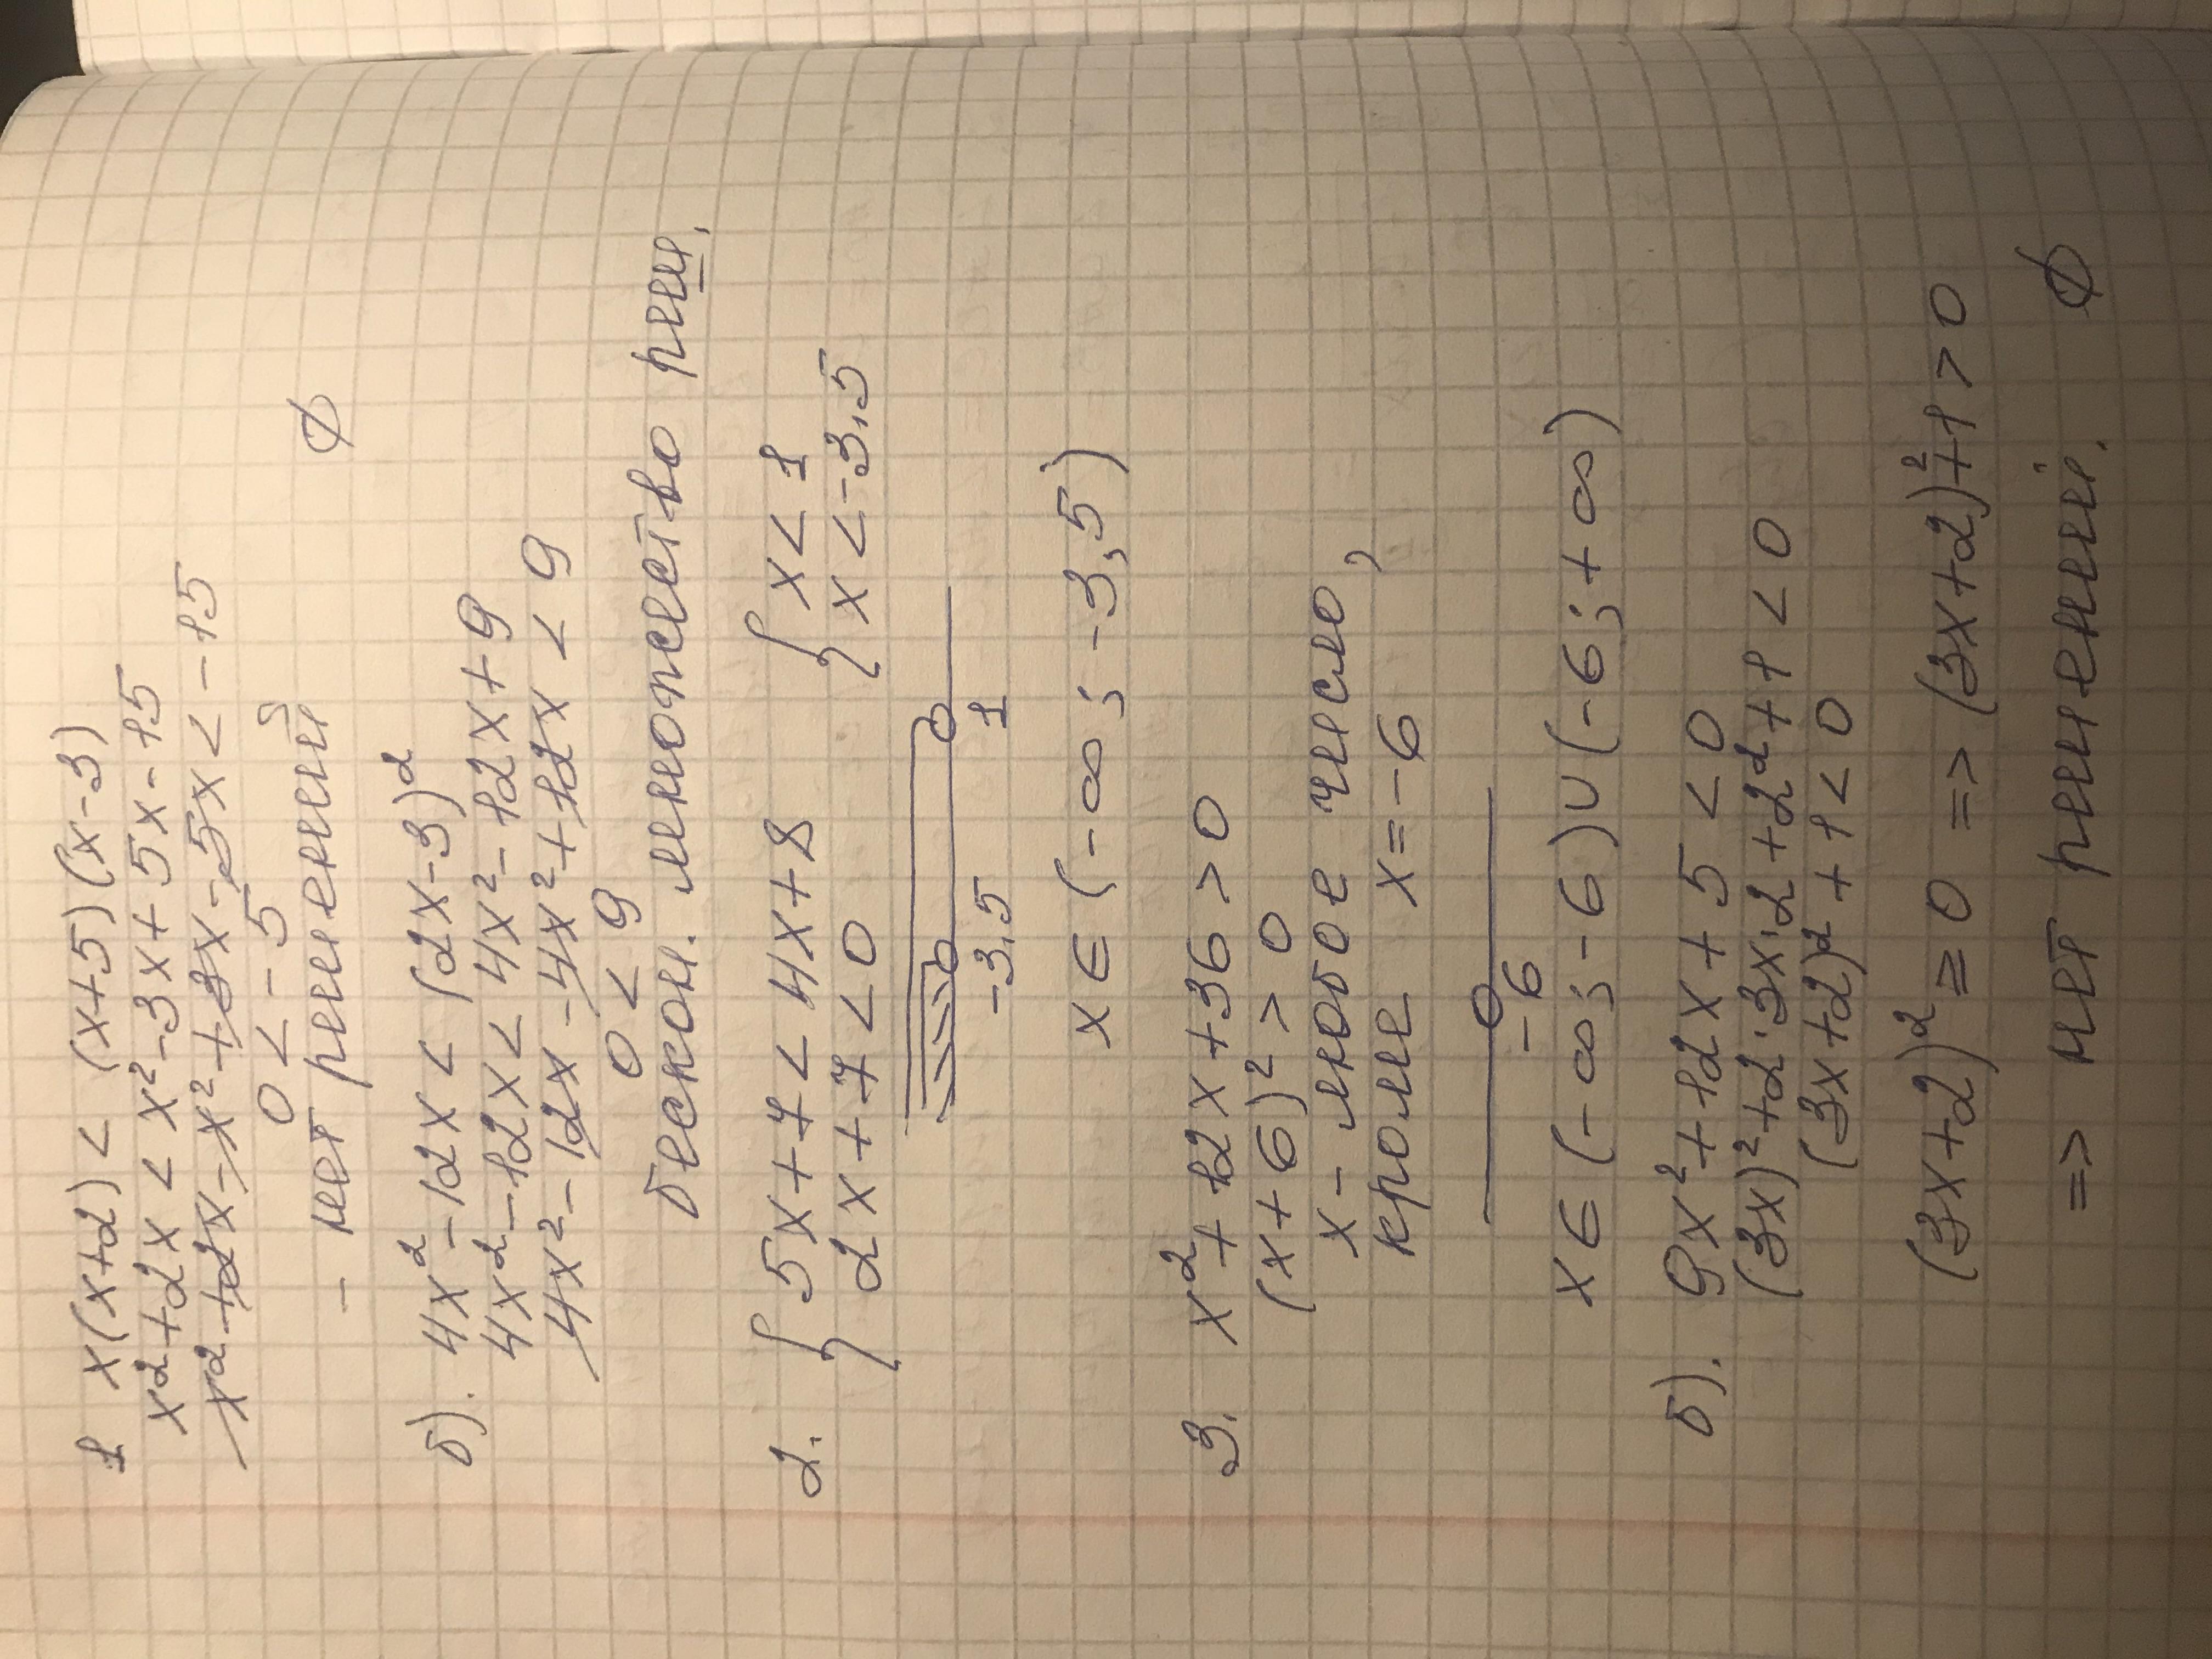 1 x(x+2) < (x+5)(x-3)
x²+2x < x²-3x+5x-15
x²+2x-x²+3x-5x<-15
0 < -5
- нет решений ∅
б). 4x²-12x < (2x-3)²
4x²-12x < 4x²-12x+9
4x²-12x-4x²+12x < 9
0 < 9
бескон. множество реш.
2. { 5x+7 < 4x+8 { x < 1
2x+7 < 0 x < -3,5
-3,5 1
x ∈ (-∞; -3,5)
3. x²+12x+36 > 0
(x+6)² > 0
x - любое число,
кроме x=-6
-6
x ∈ (-∞; -6) ∪ (-6; +∞)
б). 9x²+12x+5 < 0
(3x)²+2·3x·2+2²+1 < 0
(3x+2)²+1 < 0
(3x+2)² ≥ 0 => (3x+2)²+1 > 0
=> нет решений. ∅